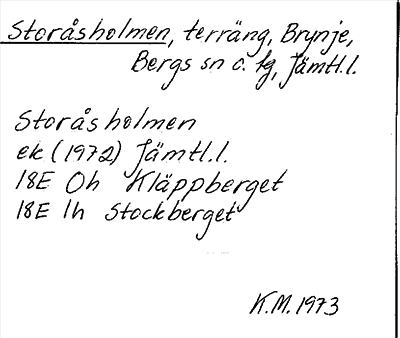 Storåsholmen, terräng, Brynje,
Bergs sn o. tg, Jämtl.l.
Storåsholmen
ek (1972) Jämtl.l.
18E 0h Kläppberget
18E 1h Stockberget
K.M. 1973